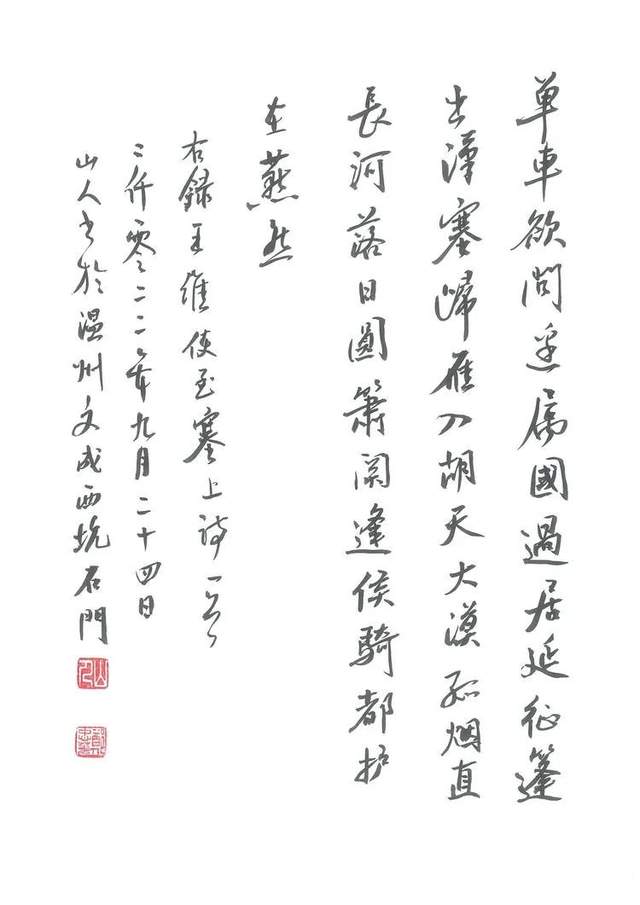 单車欲問邊属國過居延征篷
出漢塞歸雁入胡天大漠孤烟直
長河落日圓簫関逢侯騎都护
在燕然
右録王維使至塞上詩一首
二仟零二二年九月二十四日
山人书於温州文成西坑石門
山人